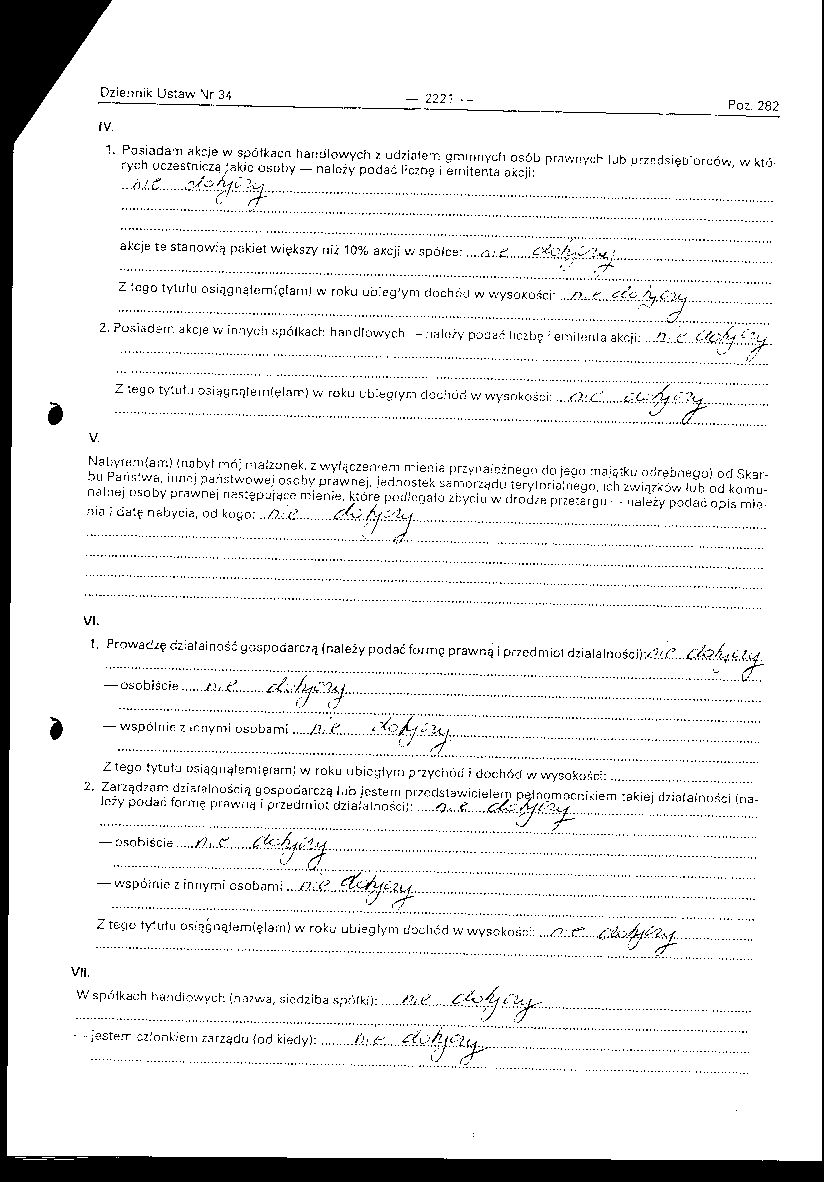 Dziennik Ustaw Nr 34 — 2221 — Poz. 282
IV.
1. Posiadam akcje w spółkach handlowych z udziałem gminnych osób prawnych lub przedsiębiorców, w któ-
rych uczestniczą takie osoby — należy podać liczbę i emitenta akcji:
nie dotyczy
akcje te stanowią pakiet większy niż 10% akcji w spółce: nie dotyczy
Z tego tytułu osiągnąłem(ęłam) w roku ubiegłym dochód w wysokości: nie dotyczy
2. Posiadam akcje w innych spółkach handlowych — należy podać liczbę i emitenta akcji: nie dotyczy
Z tego tytułu osiągnąłem(ęłam) w roku ubiegłym dochód w wysokości: nie dotyczy
V.
Nabyłem(am) (nabył mój małżonek, z wyłączeniem mienia przynależnego do jego majątku odrębnego) od Skar-
bu Państwa, innej państwowej osoby prawnej, jednostek samorządu terytorialnego, ich związków lub od komu-
nalnej osoby prawnej następujące mienie, które podlegało zbyciu w drodze przetargu — należy podać opis mie-
nia i datę nabycia, od kogo: nie dotyczy
VI.
1. Prowadzę działalność gospodarczą (należy podać formę prawną i przedmiot działalności): nie dotyczy
— osobiście nie dotyczy
— wspólnie z innymi osobami nie dotyczy
Z tego tytułu osiągnąłem(ęłam) w roku ubiegłym przychód i dochód w wysokości:
2. Zarządzam działalnością gospodarczą lub jestem przedstawicielem pełnomocnikiem takiej działalności (na-
leży podać formę prawną i przedmiot działalności): nie dotyczy
— osobiście nie dotyczy
— wspólnie z innymi osobami nie dotyczy
Z tego tytułu osiągnąłem(ęłam) w roku ubiegłym dochód w wysokości: nie dotyczy
VII.
W spółkach handlowych (nazwa, siedziba spółki): nie dotyczy
— jestem członkiem zarządu (od kiedy): nie dotyczy